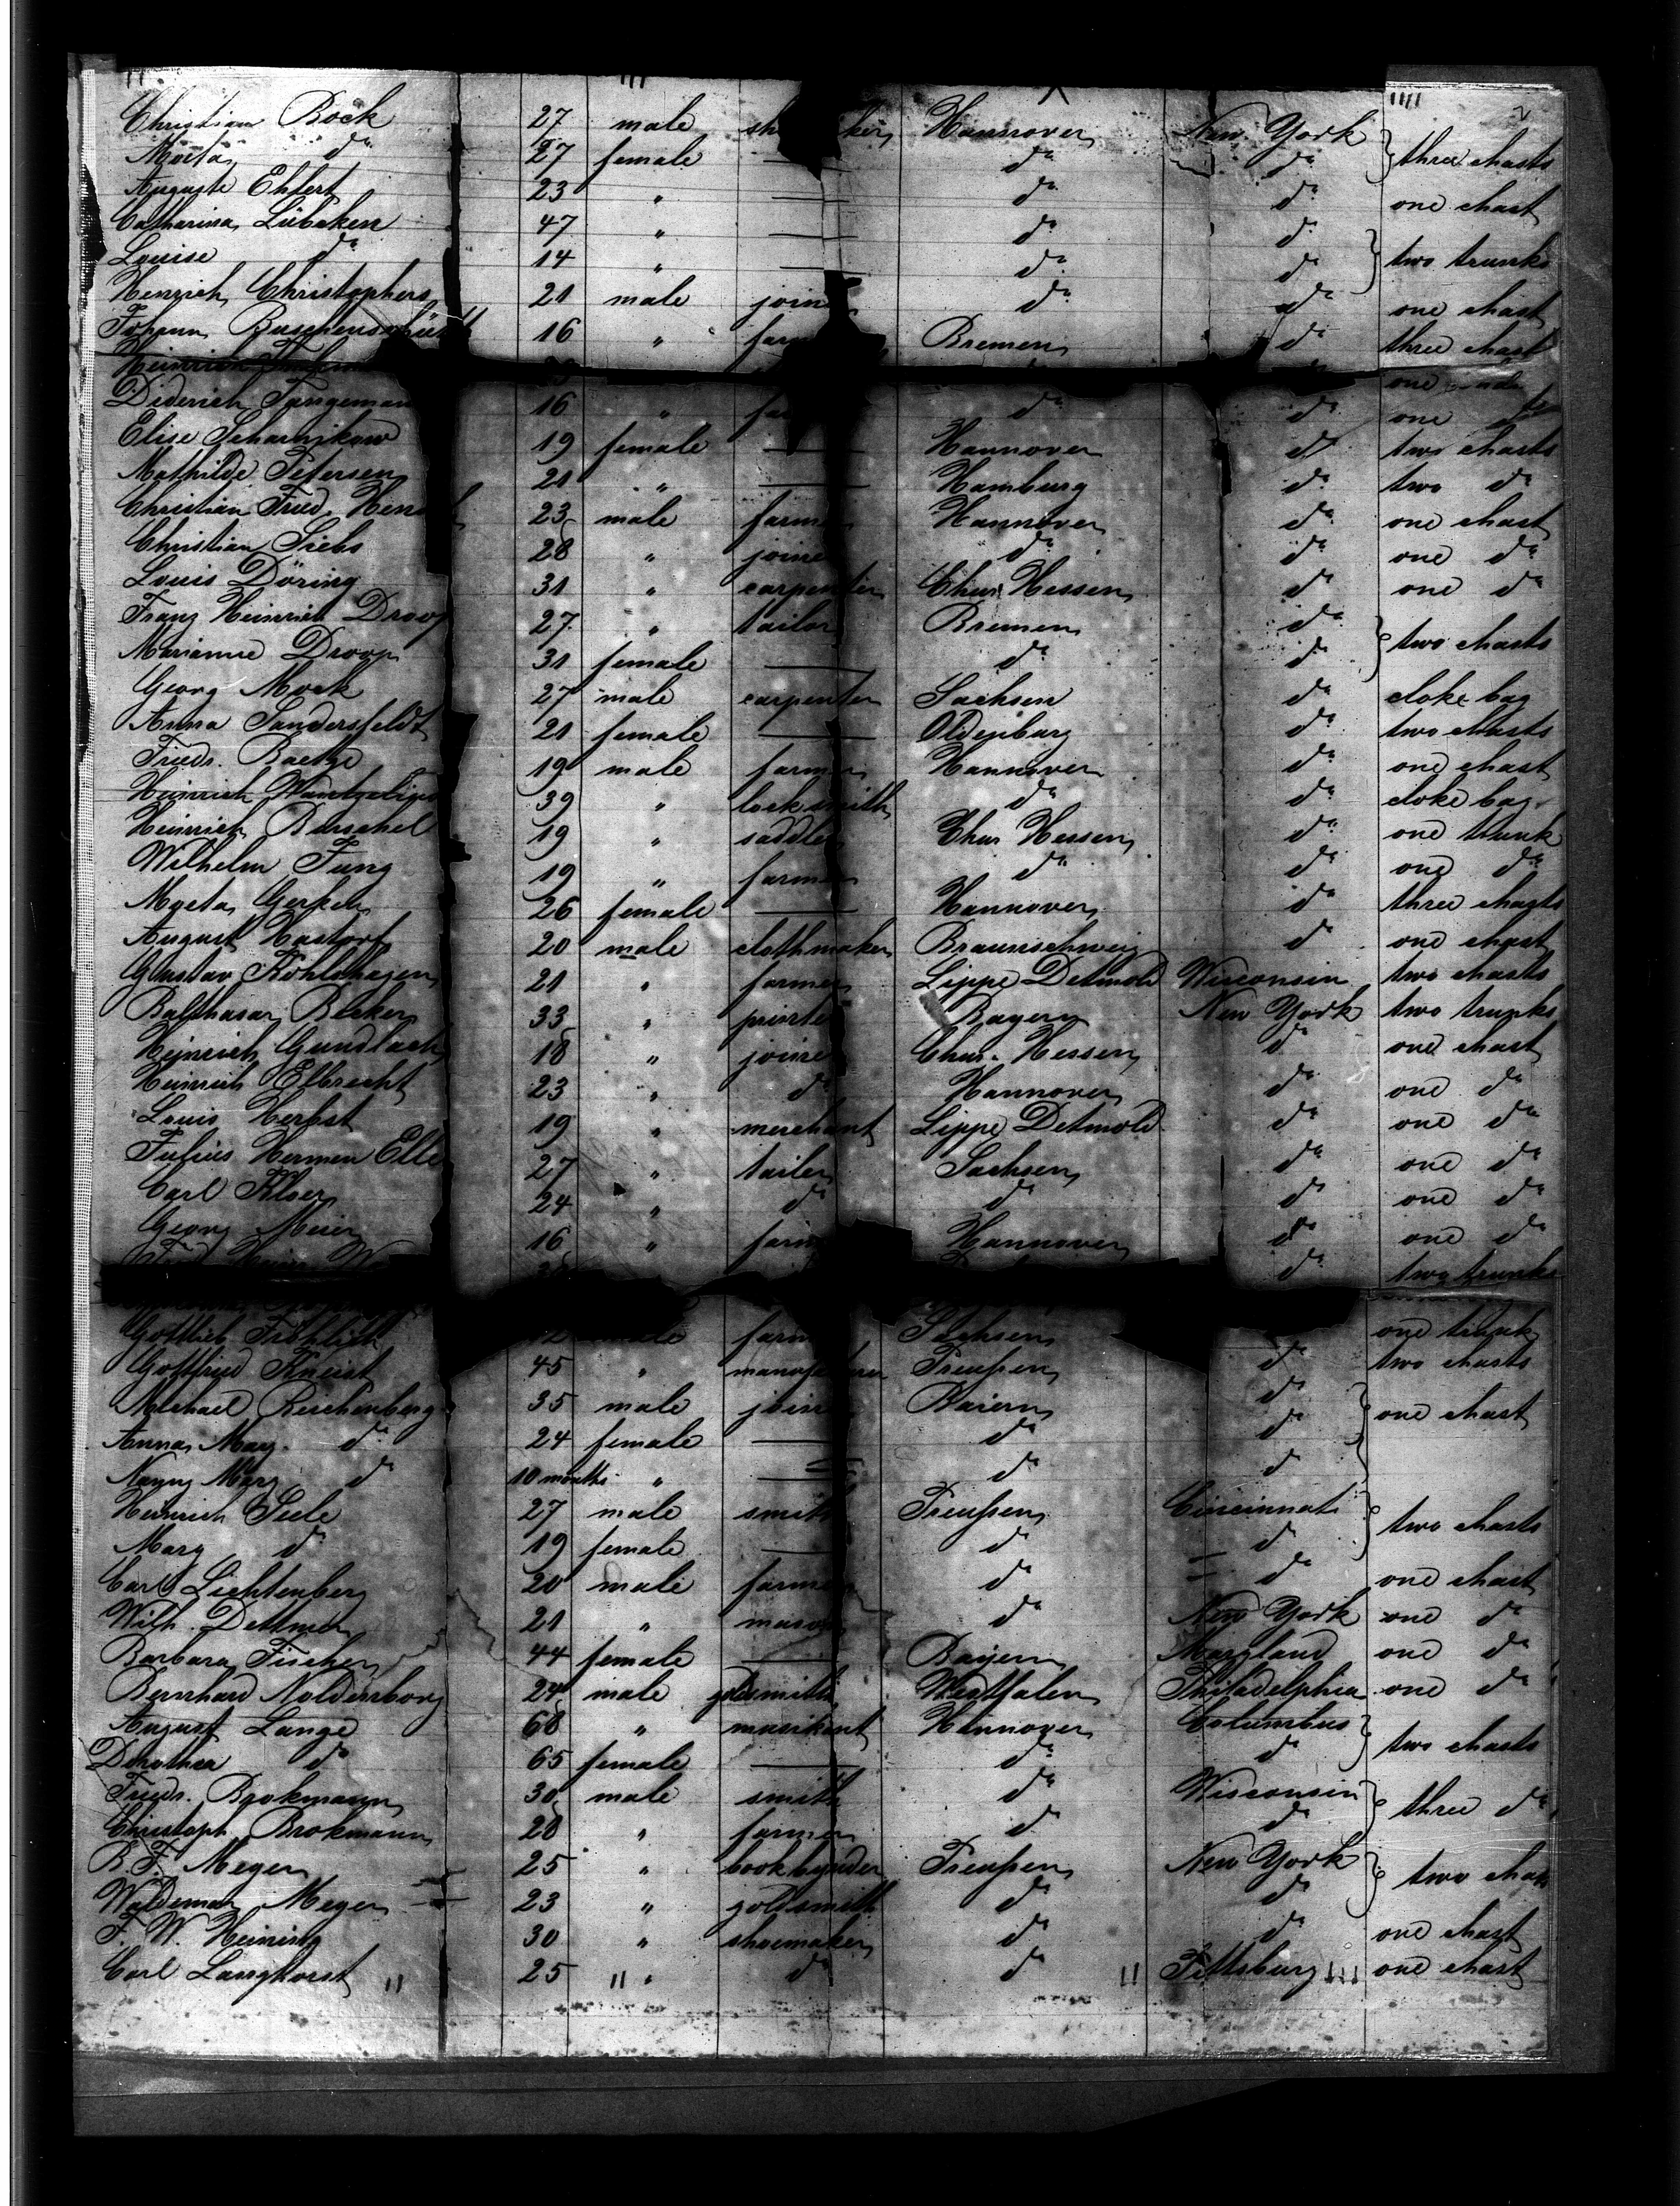 Christian Böck 27 male Hannover New York three chasts
Meta do 27 female — do do
Auguste Ehlert 23 " — do do one chast
Catharina Lübcken 47 " — do do two trunks
Louise do 14 " — do do
Henrich Christophers 21 male join do do one chast
Johann Buschenschütt 16 " far Bremen do three chast
Heinrich one
Diderich Tangeman 16 " fa do do one do
Elise Scharnikow 19 female — Hannover do two chasts
Mathilde Petersen 21 " — Hamburg do two do
Christian Fried. 23 male farmer Hannover do one chast
Christian Siebs 28 " joine do do one do
Louis Döring 31 " carpenter Chur Hessen do one do
Franz Heinrich Droop 27 " tailor Bremen do two chasts
Marianne Droop 31 female — do do
Georg Mock 27 male carpenter Sachsen do cloke bag
Anna Sandersfeldt 21 female — Oldenburg do two chasts
Friedr. Baetge 19 male farmer Hannover do one chast
Heinrich 39 " locksmith do do cloke bag
Heinrich Berschel 19 " saddler Chur Hessen do one trunk
Wilhelm Jung 19 " farmer do do one do
Meta Gerken 26 female — Hannover do three chasts
August Hastorf 20 male clothmaker Braunschweig do one chast
Gustav Kohlshagen 21 " farmer Lippe Detmold Wisconsin two chasts
Balthasar Becker 33 " printer Bayern New York two trunks
Heinrich Gundlach 18 " joiner Chur. Hessen do one chast
Heinrich Elbrecht 23 " do Hannover do one do
Louis Herbst 19 " merchant Lippe Detmold do one do
Julius Hermen Elle 27 " tailer Sachsen do one do
Carl Kloer 24 " do do do one do
Georg Meier 16 " farm Hannover do one do
do two trunks
Gottlieb Fröhlich farm Sachsen one trunk
Gottfried Kneist 45 " Preußen do two chasts
Michael Reichenberg 35 male joine Baiern do one chast
Anna Mary. do 24 female — do do
Nanny Mary do 10 months " — do do
Heinrich Seele 27 male smith Preußen Cincinnati two chasts
Mary do 19 female — do do
Carl Lichtenberg 20 male farmer do do one chast
Wilh. Dettmer 21 " mason do New York one do
Barbara Fischer 44 female — Baijern Maryland one do
Bernhard Noldernborg 24 male goldsmith Westfalen Philadelphia one do
August Lange 68 " musikant Hannover Columbus two chasts
Dorothea do 65 female — do do
Friedr. Brokmann 30 male smith do Wisconsin three do
Christoph Brokmann 28 " farmer do do
B. F. Meyer 25 " bookbynder Preußen New York two chas
Waldemar Meyer 23 " goldsmith do do
F. W. Heining 30 " shoemaker do do one chast
Carl Langhorst 25 " do do Pittsburg one chast